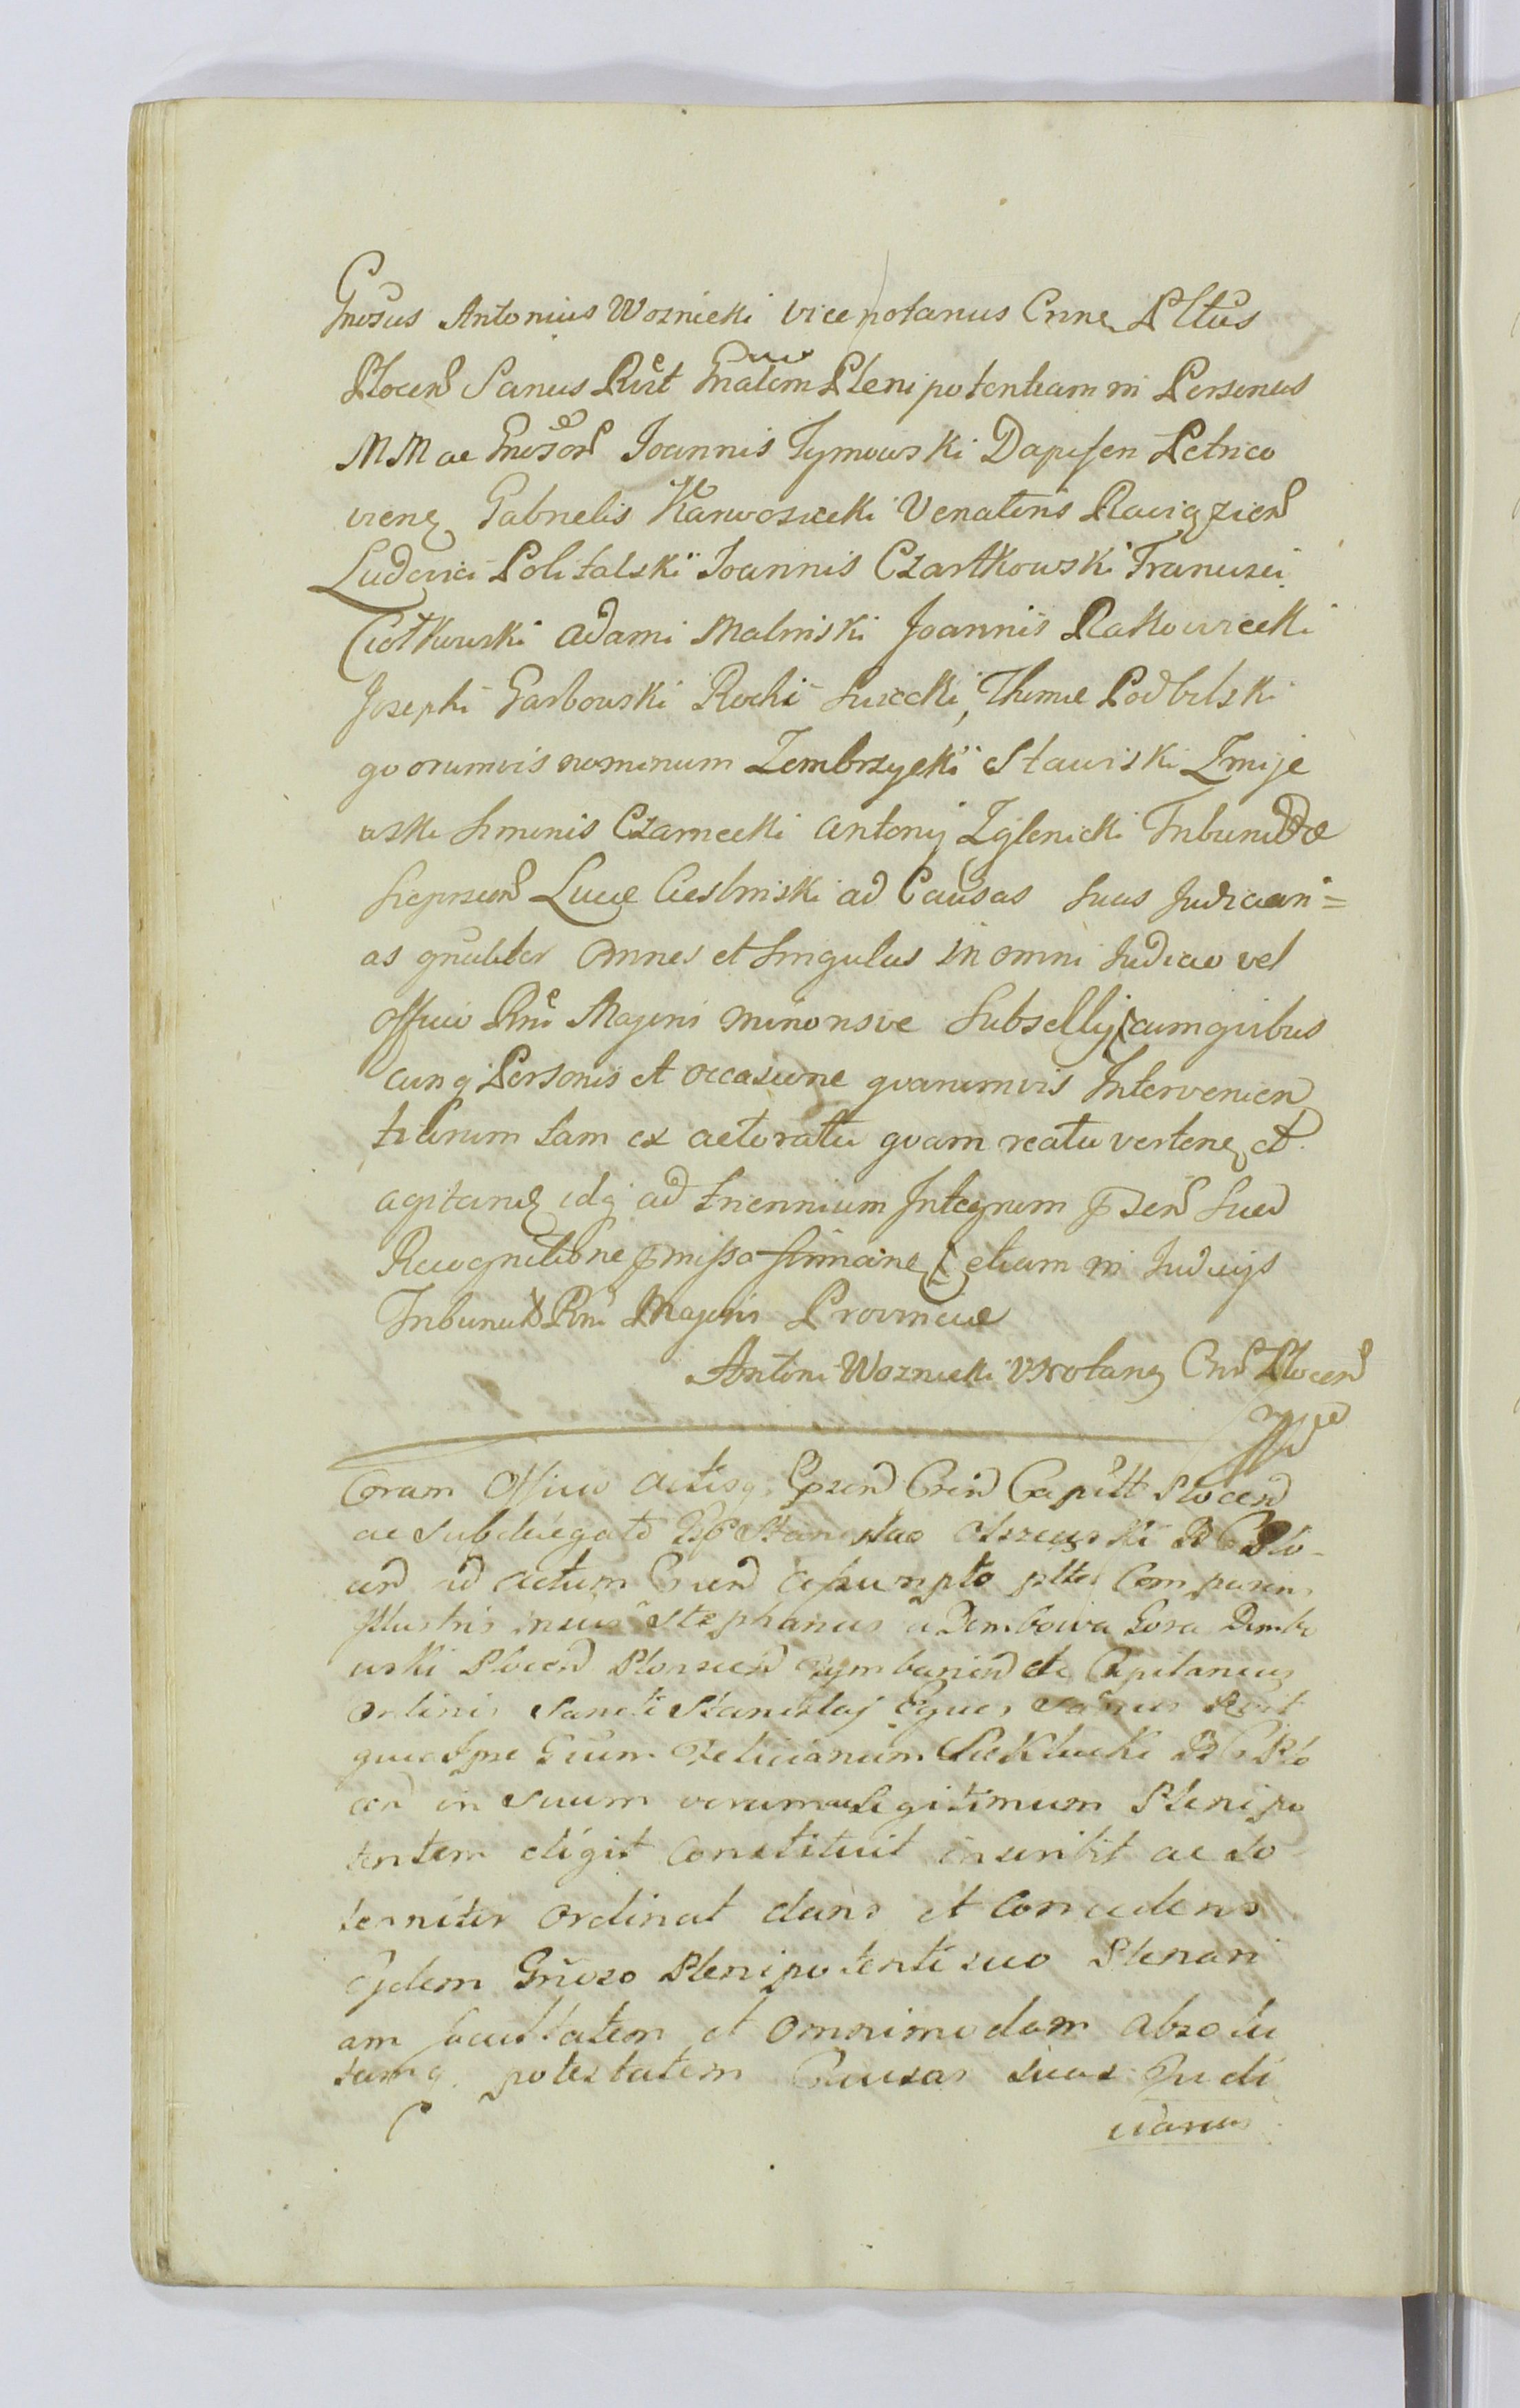 Gnosus Antonius Woznicki vicenotarius Crne Pltus
Plocen Sanus Rcit Gnalem suo Plenipotentiam in Personas
MM ac Gnosor Joannis Tymowski Dapiferi Petrico
viens Gabrielis Karwosiecki Venatoris Raciązien
Ludovici Politalski Joannis Czartkowski Francisci
Ciotkowski Adami Malinski Joannis Rakowiecki
Josephi Garbowski Rochi Suiecki, Thomae Podbilski
qvorumvis nominum Zembrzycki Stawiski Zmije
wski Simonis Czarnecki Antonij Zglenicki Tribunidae
Sieprcen Lucae Cieslinski ad Causas suas Judiciari=
as gnaliter omnes et singulas in omni Judicio vel
officio Rni Majoris minorisve Subsellij cum qvibus
cunq Personis et occasione qvarumvis Intervenien
tiarum tam ex actoratu qvam reatu vertens et
agitand idq ad triennium Integrum pden sued
Recognitione pmissa firmans etiam in Judicijs
Tribunal Rni Majoris Provinciae
Antoni Woznicki VNotarig Crn Plocen
mpp
Coram Officio Actisq psend Cren Capitt Plocen
ac Subdelegato Stanislao Olszewski B C Plo-
cen ad actum psend assumpto pltes Comparens
Illustris mcus Stephanus a Dembowa Gora Dembo
wski Plocen Plonscen etc Capitaneus
Ordinis Sancti Stanislaj Eques Sanus Rcit
quia Ipse Gsum Felicianum Sieklucki B C Plo
cen in suum verum ac Legitimum Plenipo
tentem eligit Constituit inscribit ac so
lenniter ordinat dans et Concedens
Ejdem Gnoso Plenipotenti suo Plenari
am facultatem et omnimodam absolu
tamq. potestatem Causas suas Judi
ciarias